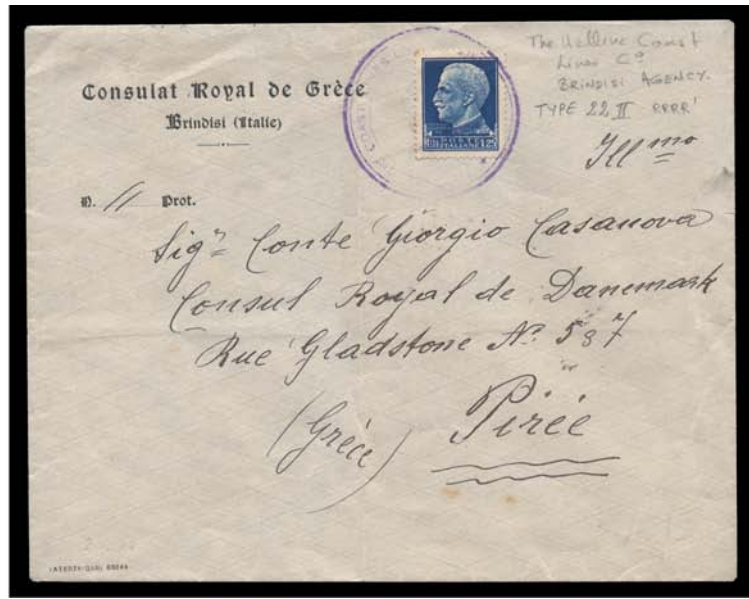 Consulat Royal de Grèce
Brindisi (Italie)
The Hellenic Coast
Lines Co
BRINDISI AGENCY.
TYPE 22 II RRRR
POSTE
ITALIANE 1,25
Illmo
N. 11 Prot.
Sigr Conte Giorgio Casanova
Consul Royal de Danemark
Rue Gladstone No
(Grèce) Pirée